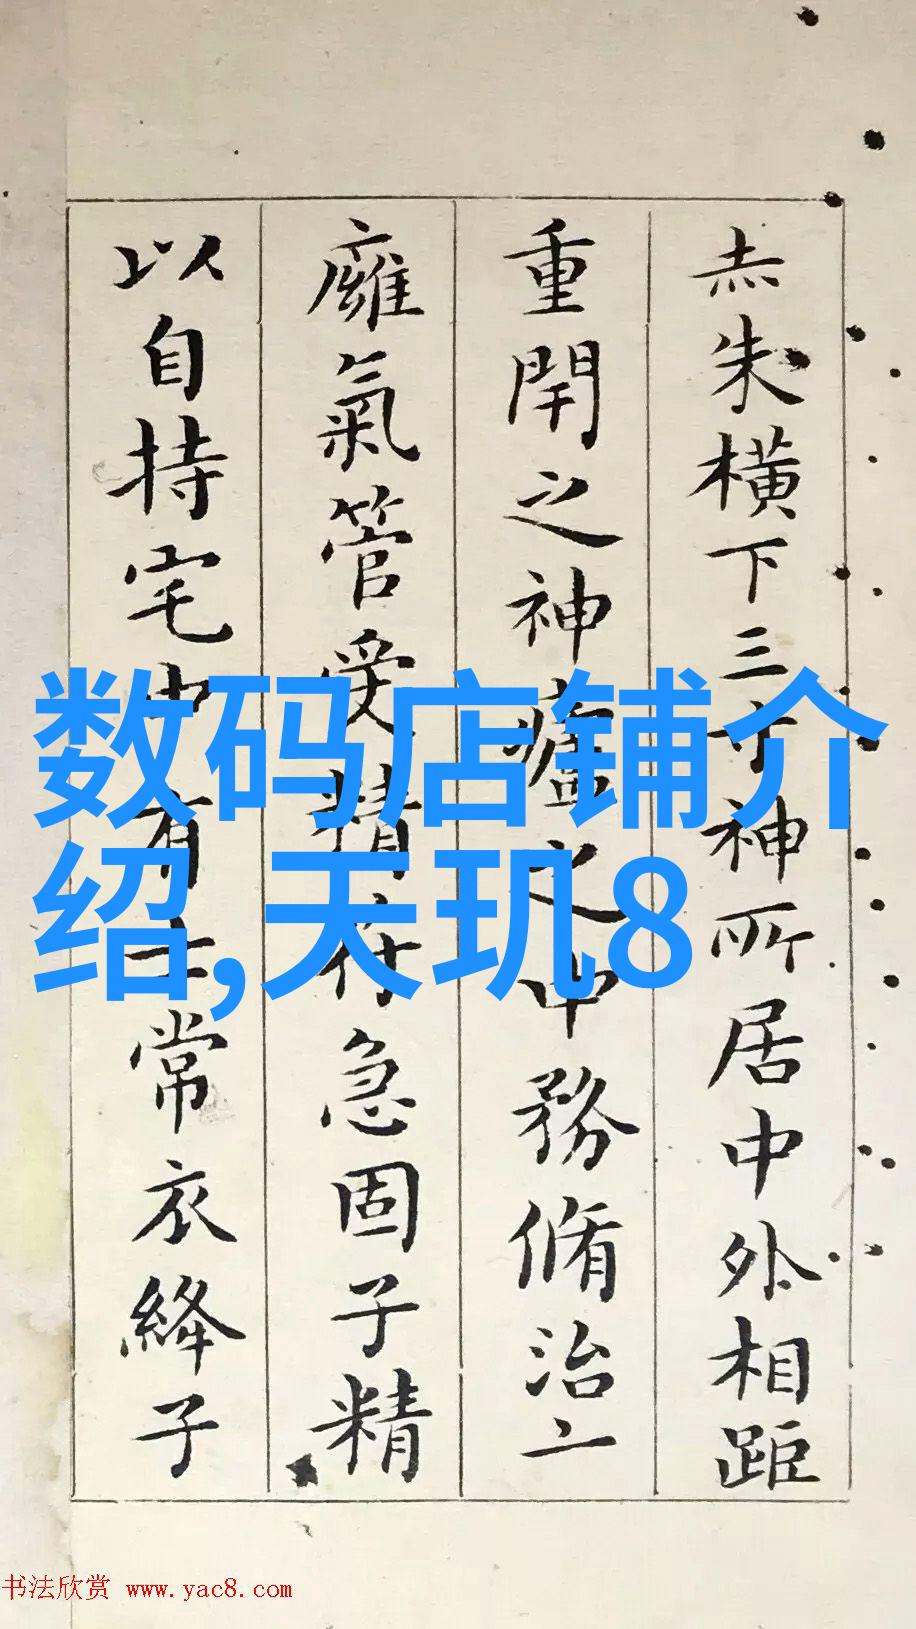 赤朱橫下三寸神所居中外相距
重閇之神廬之中務脩治亠
廱氣管受精符急固子精
以自持宅中有士常衣絳子
数码店铺介
绍,天玑8
书法欣赏 www.yac8.com